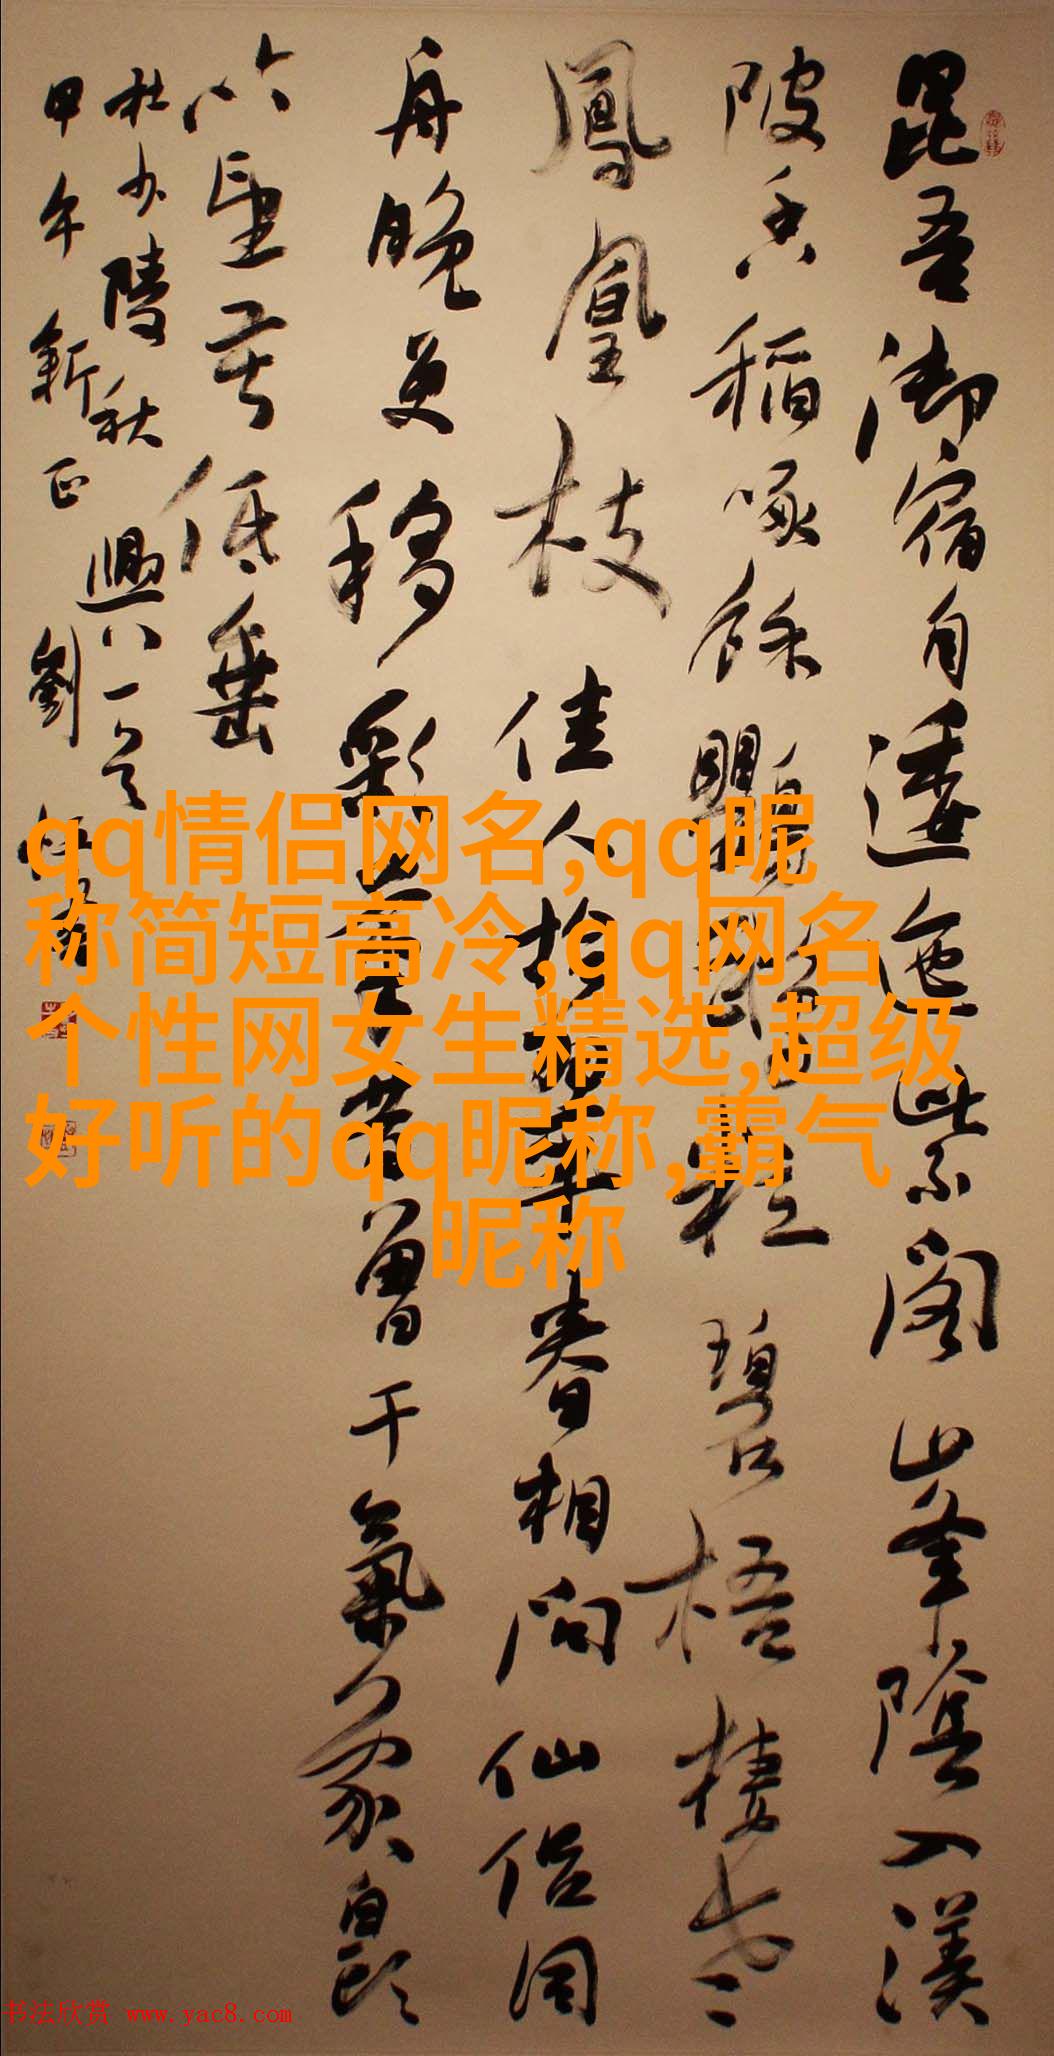 昆吾御宿自逶迤紫閣山峯陰入渼
陂香稻啄餘鸚鵡粒碧梧棲老
鳳凰枝佳人拾翠春相問仙侣同
舟晚更移彩筆昔曾干氣象白頭
吟望苦低垂
杜少陵秋興八一首
甲午新正劉
qq情侣网名,qq昵
称简短高冷,qq网名
个性网女生精选,超级
好听的qq昵称,霸气
昵称
书法欣赏 www.yac8.com